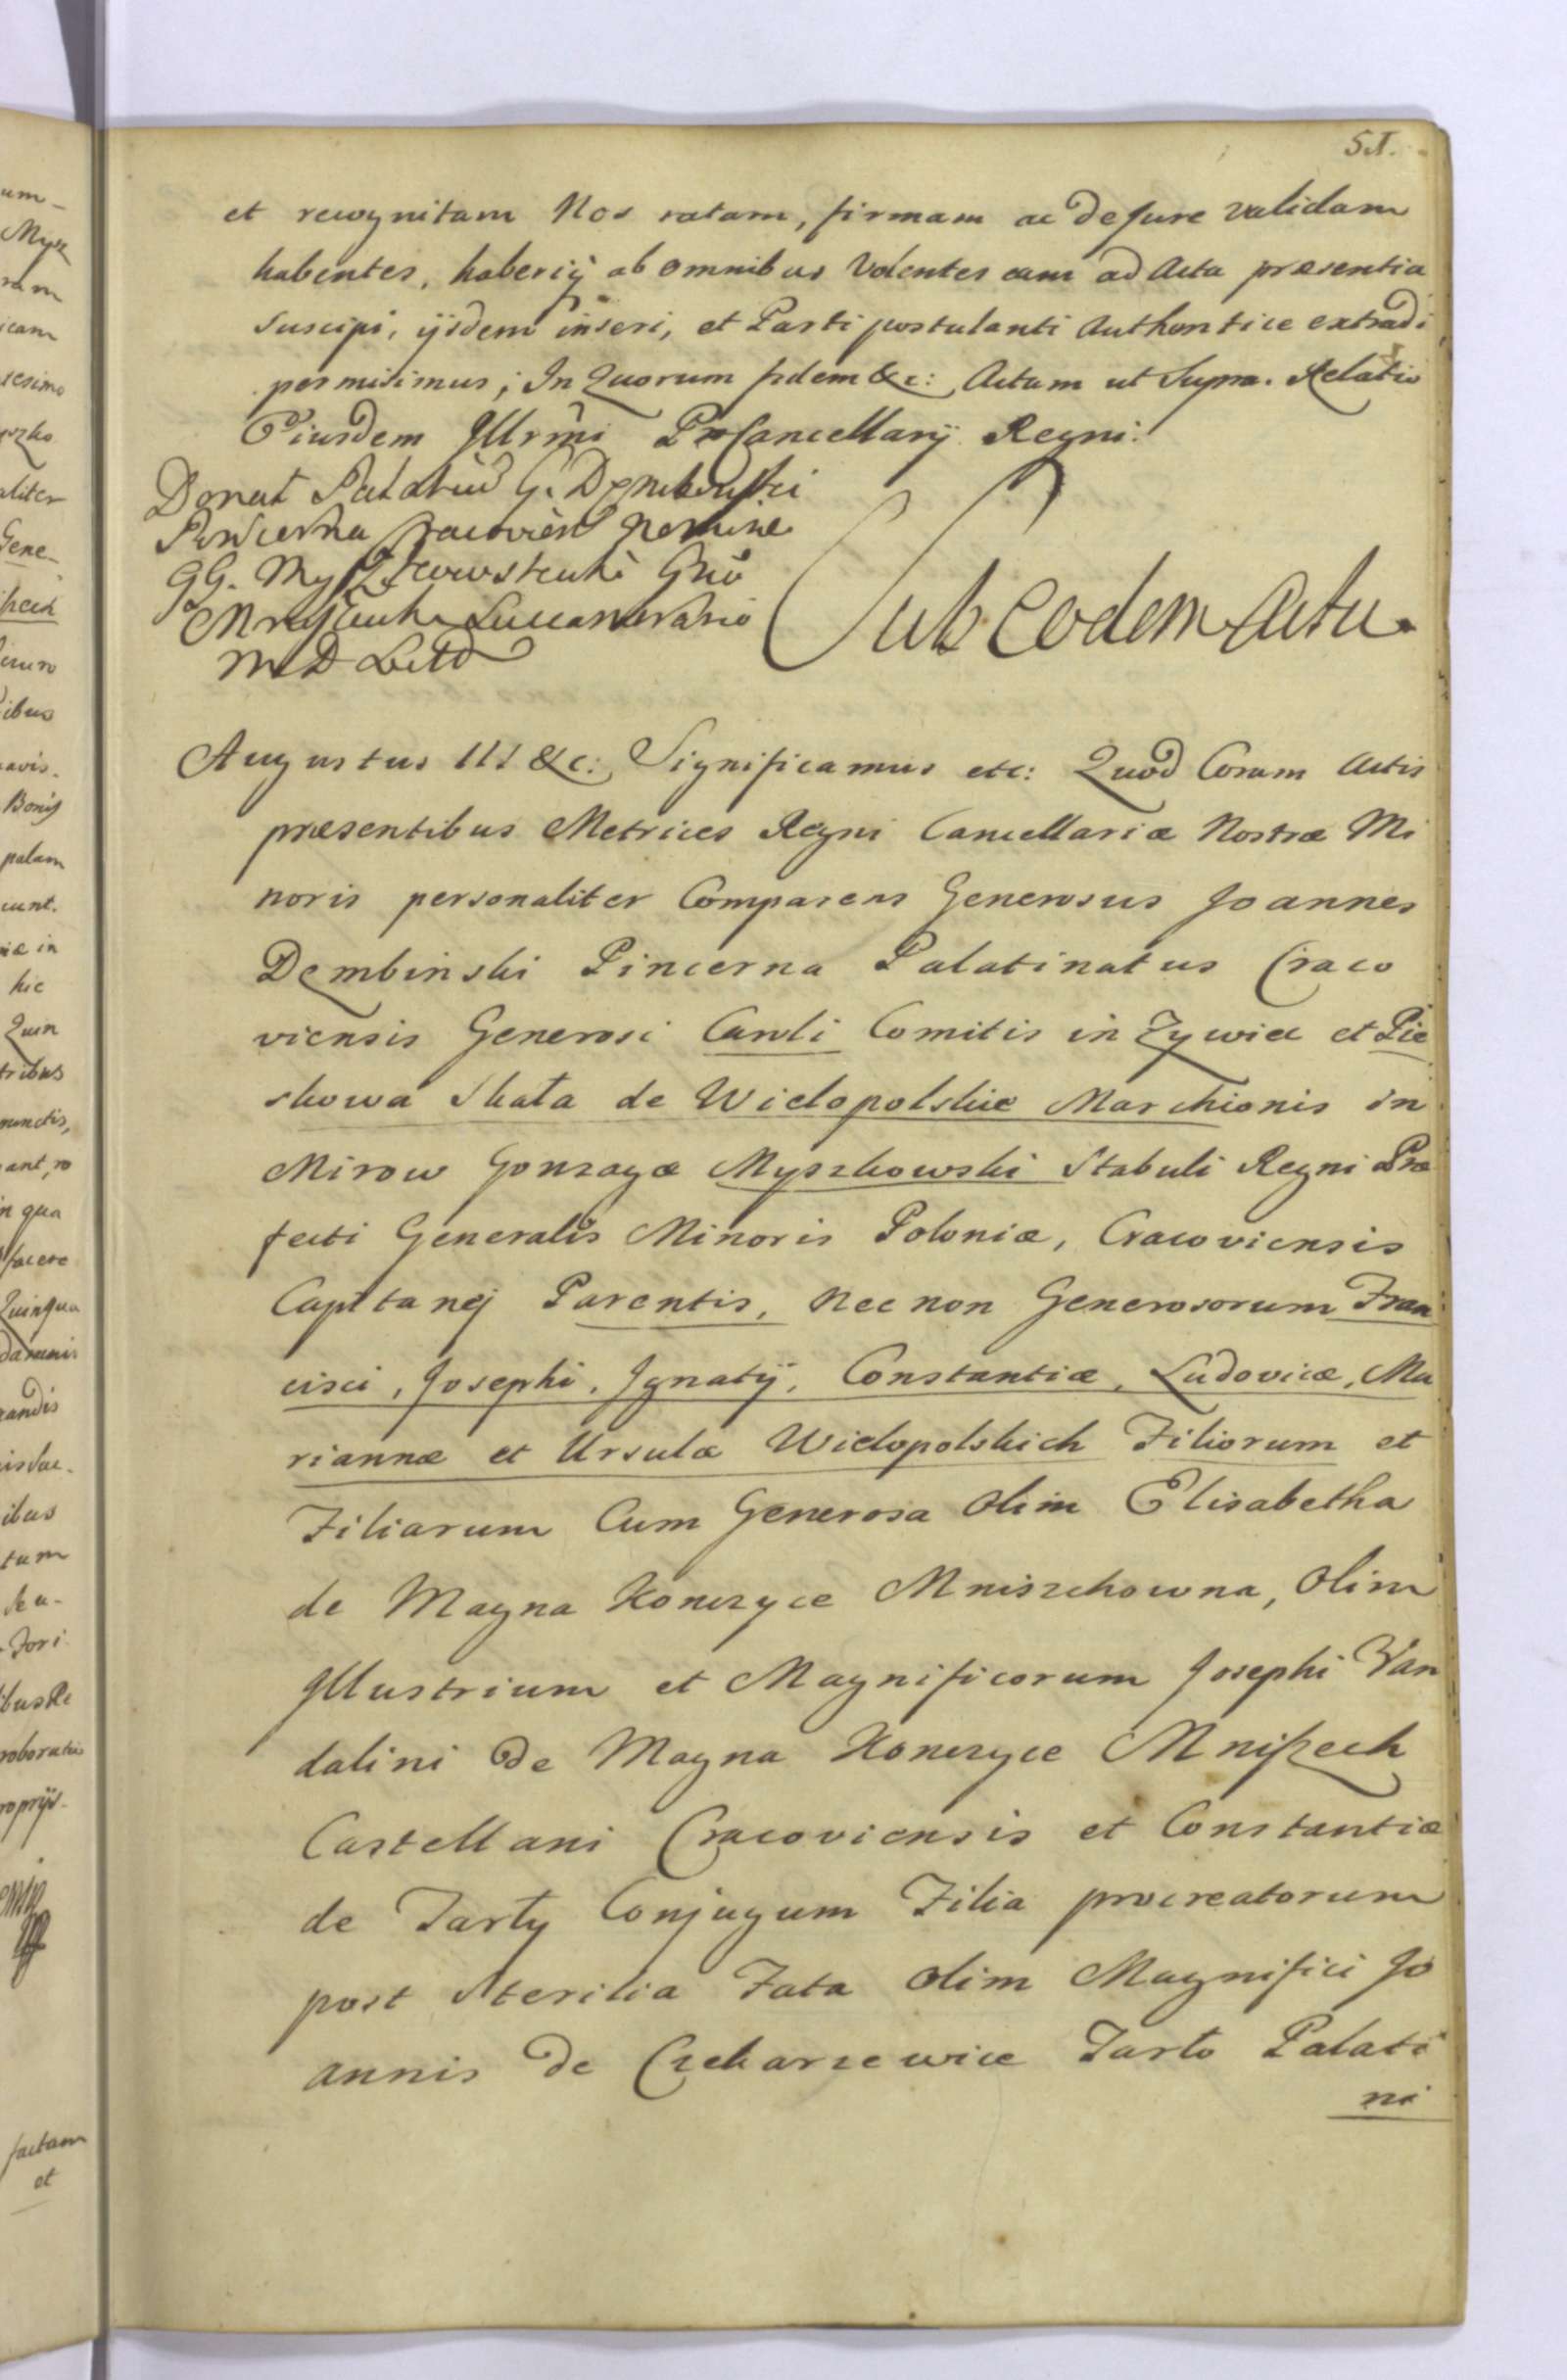 51.
et recognitam Nos ratam, firmam ac de Jure validam
habentes, haberiq ab omnibus Volentes eam ad Acta præsentia
Suscipi, ijsdem inseri, et Parti postulanti Authentice extradi
permisimus; In Quorum fidem &c: Actum ut Supra. Relatio
Eiusdem Illrmi ProCancellarij Regni.
Donat G. Dembinski
Pincerna nomine
GG. Gnō
M D Litt
Sub eodem Actu.
Augustus III &c: Significamus etc: Quod Coram Actis
præsentibus Metrices Regni Cancellariæ Nostræ Mi
noris personaliter Comparens Generosus Joannes
Dembinski Pincerna Palatinatus Craco
viensis Generosi Caroli Comitis in Zywiec et Pie
skowa Skała de Wielopolskie Marchionis in
Mirow Gonzagæ Myszkowski Stabuli Regni Præ
fecti Generalis Minoris Poloniæ, Cracoviensis
Capitanej Parentis, Nec non Generosorum Fran
cisci, Josephi, Ignatij, Constantiæ, Ludovicæ, Ma
riannæ et Ursulæ Wielopolskich Filiorum et
Filiarum Cum Generosa Olim Elisabetha
de Magna Konczyce Mniszchowna, Olim
Illustrium et Magnificorum Josephi Van
dalini de Magna Konczyce Mniszech
Castellani Cracoviensis et Constantiæ
de Tarły Conjugum Filia procreatorum
post Sterilia Fata Olim Magnifici Jo
annis de Czekarzewice Tarło Palati
ni